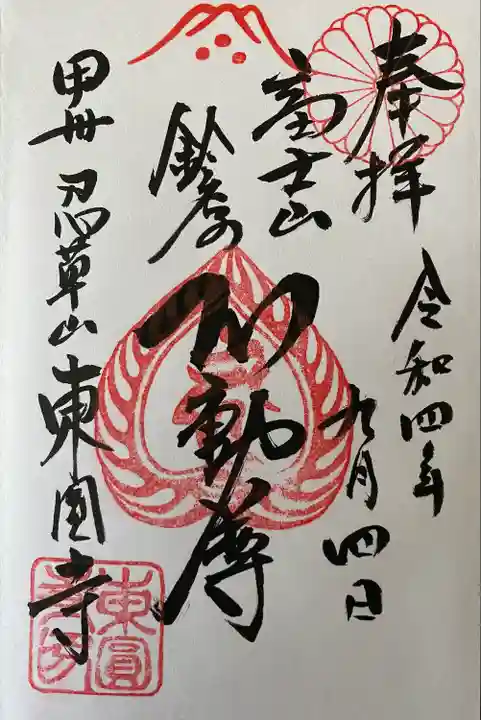 奉拝
令和四年
九月四日
富士山
鈴原の
不動尊
甲州 忍草山東圓寺
東圓寺印